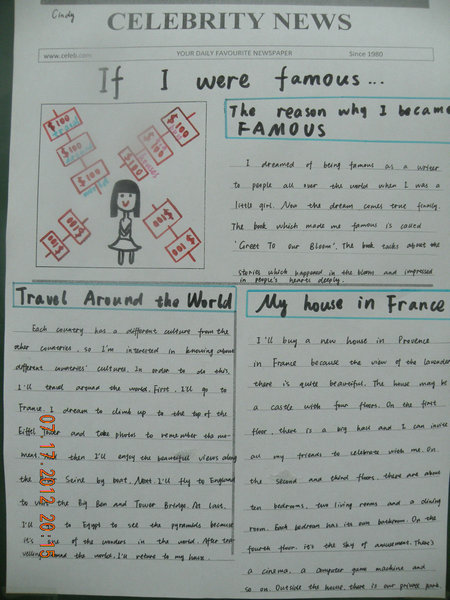 Cindy
CELEBRITY NEWS
www.celeb.com
YOUR DAILY FAVOURITE NEWSPAPER
Since 1980
If I were famous...
$100
$100
$100
world
$100
$100
$100
$100
$100
The reason why I became
FAMOUS
I dreamed of being famous as a writer
to people all over the world when I was a
little girl. Now the dream comes true finally.
The book which made me famous is called
'Greet To our Bloom'. The book talks about the
stories which happened in the bloom and impressed
in people's hearts deeply.
Travel Around the World
Each country has a different culture from the
other countries, so I'm interested in knowing about
different countries' cultures. In order to do this,
I'll travel around the world. First, I'll go to
France. I dream to climb up to the top of the
Eiffel Tower and take photos to remember the mo-
ment. And then I'll enjoy the beautiful views along
the River Seine by boat. Next, I'll fly to England
to visit the Big Ben and Tower Bridge. At last,
I'll go to Egypt to see the pyramids because
it's one of the wonders in the world. After tra-
velling around the world, I'll return to my house.
My house in France
I'll buy a new house in Provence
in France because the view of the lavender
there is quite beautiful. The house may be
a castle with four floors. On the first
floor, there is a big hall and I can invite
all my friends to celebrate with me. On
the second and third floors, there are about
ten bedrooms, two living rooms and a dining
room. Each bedroom has its own bathroom. On the
fourth floor, it's the sky of amusement. There's
a cinema, a computer game machine and
so on. Outside the house, there is our private park.
07.17.2012 20:15